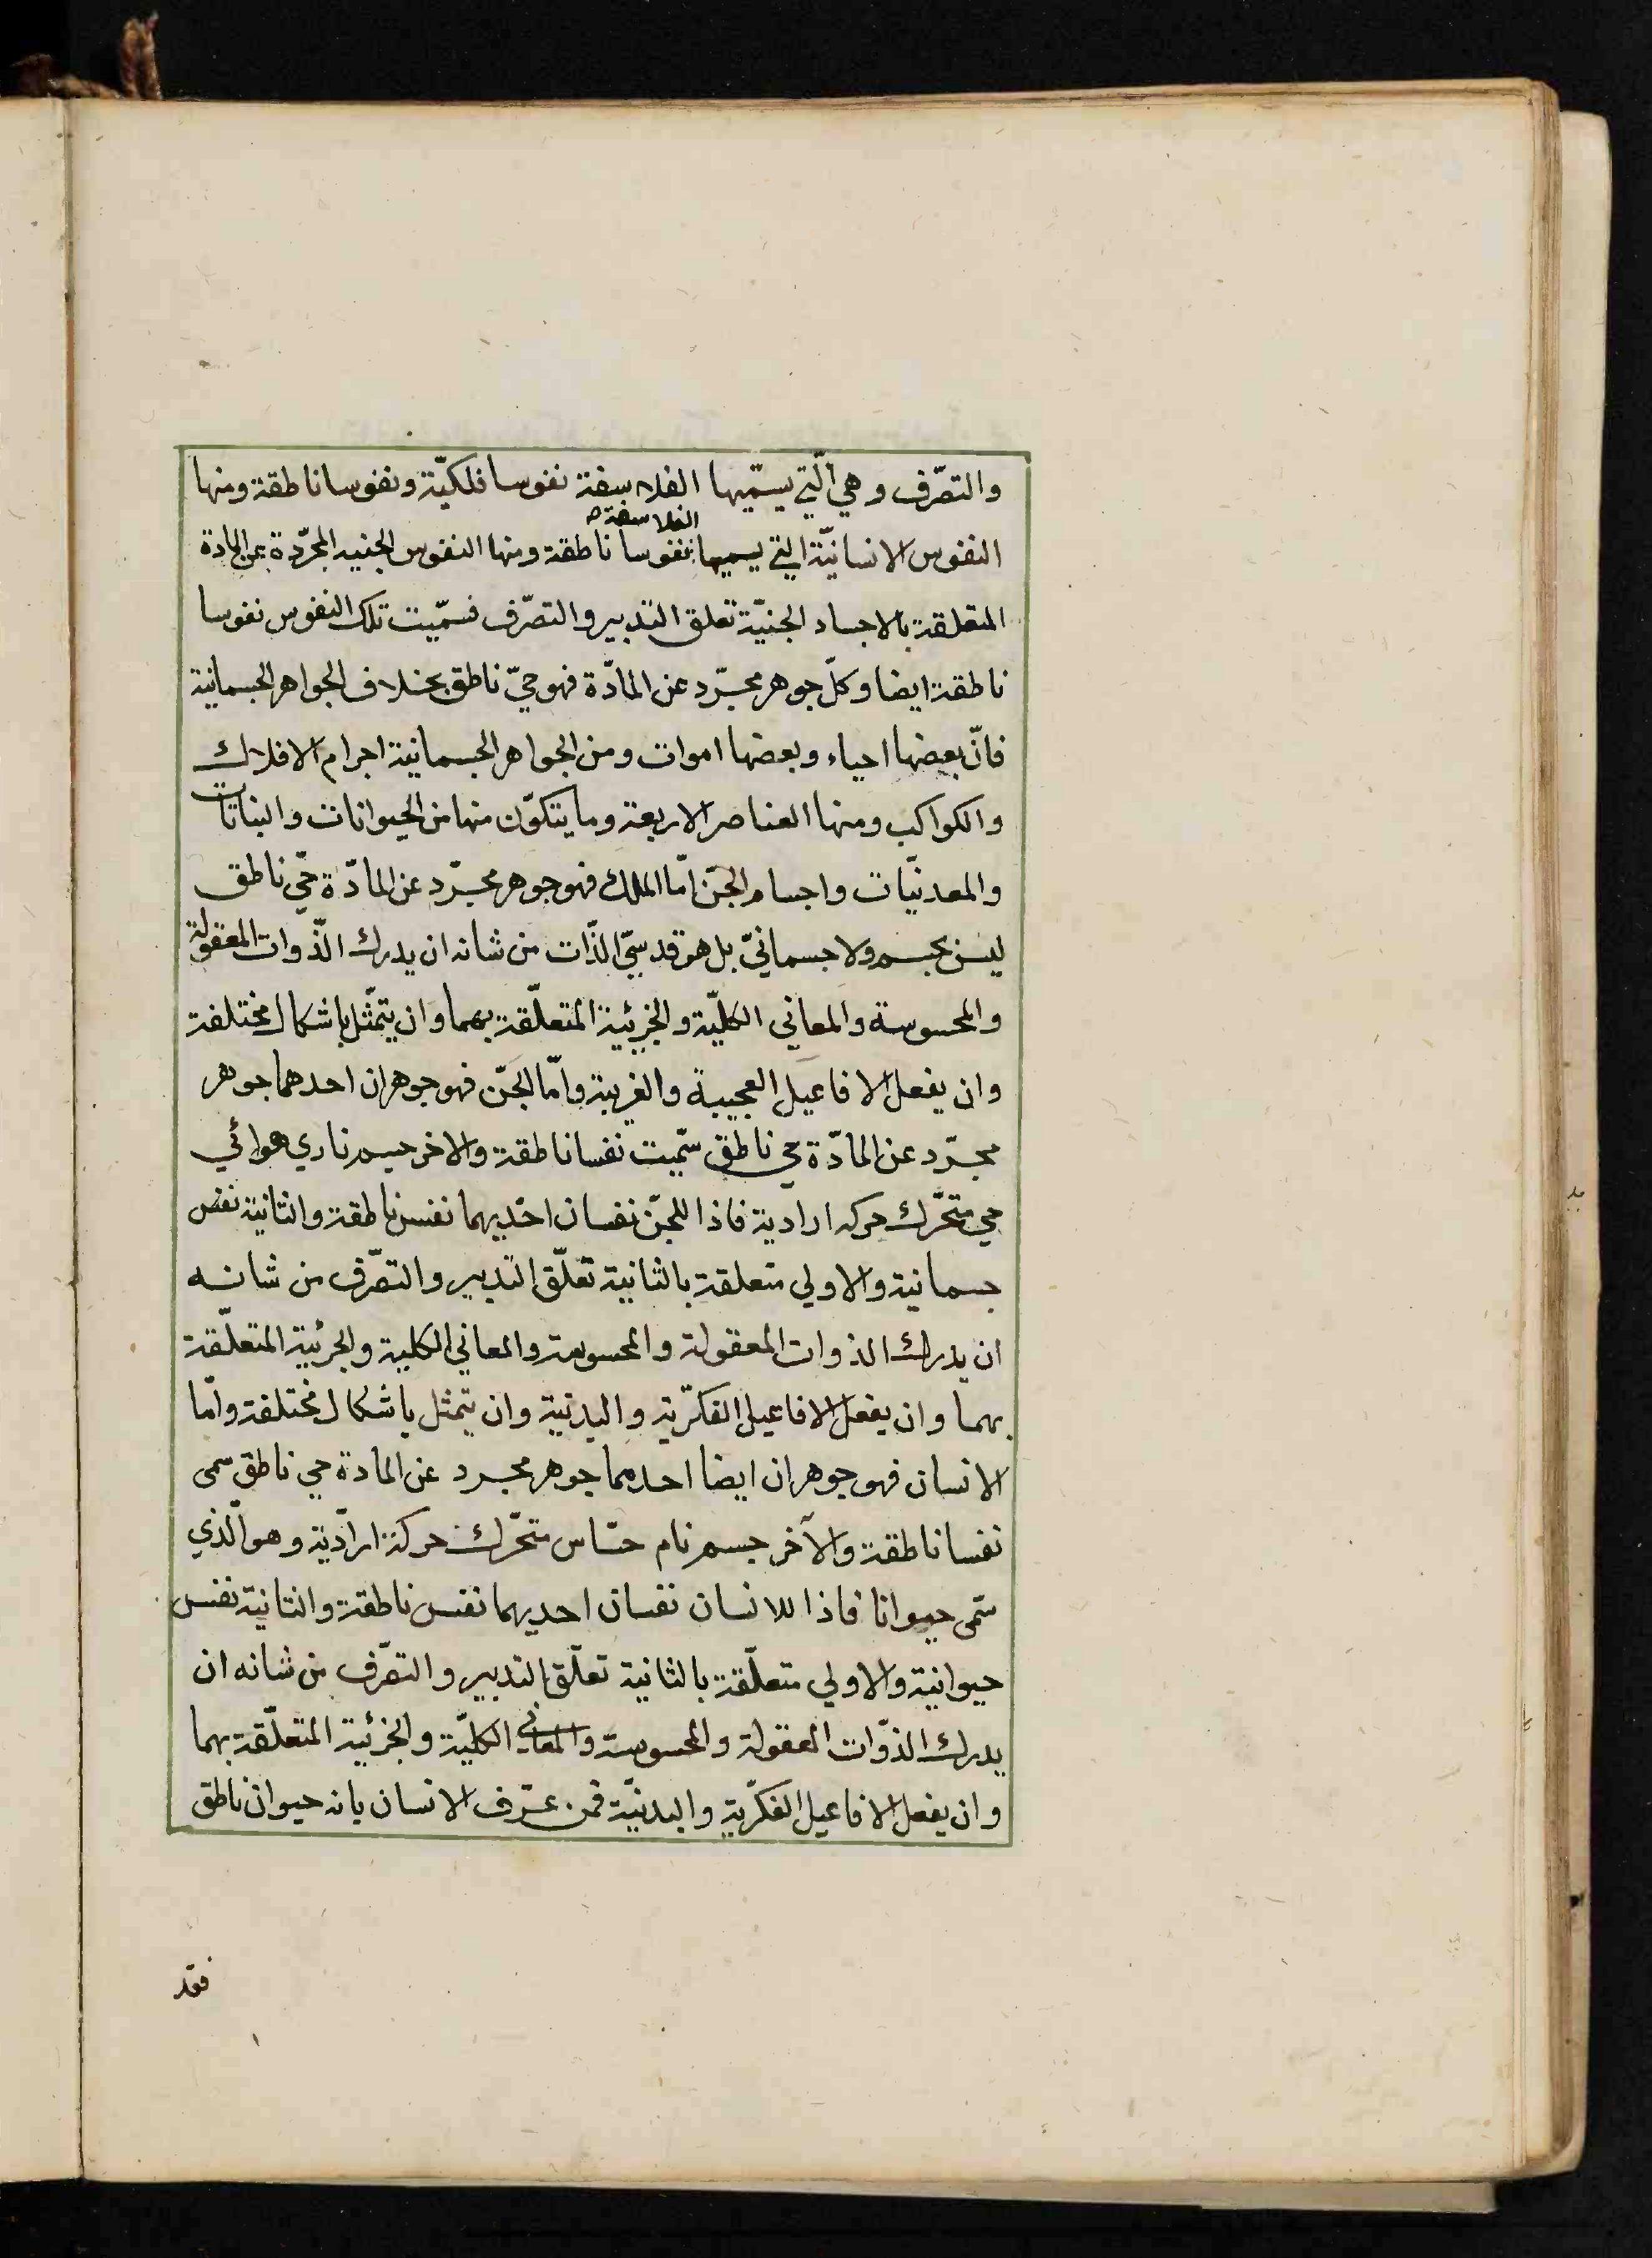 والتصّرف وهي الّتي يسمّيها الفلاسفة نفوسا فلكيّة ونفوسا ناطقة ومنها
الفلاسفة
النفوس الانسانيّة التي يسميها نفوسا ناطقة ومنها النفوس الجنيه المجرّدة عن المادة
المتعلقة بالاجساد الجنيّة تعلق التدبير والتصرّف فسمّيت تلك النفوس نفوسا
ناطقة ايضا وكلّ جوهر مجرّد عن المادّة فهو حيّ ناطق بخلاف الجواهر الجسمانية
فانّ بعضها احياء وبعضها اموات ومن الجواهر الجسمانية اجرام الافلاك
والكواكب ومنها العناصر الاربعة وما يتكوّن منها من الحيوانات والنباتات
والمعدنيّات واجسام الجنّ امّا الملك فهو جوهر مجرّد عن المادّة حّي ناطق
ليس بجسم ولا جسمانيّ بل هو قدسيّ الذّات من شانه ان يدرك الذّوات المعقولة
والمحسوسة والمعاني الكليّة والجزئية المتعلّقة بهما وان يتمّثل باشكال مختلفة
وان يفعل الافاعيل العجيبة والغريبة وامّا الجنّ فهو جوهران احدهما جوهر
مجرّد عن المادّة حي ناطق سمّيت نفسا ناطقة والاخر جسم ناري هوائي
حي متحّرك حركه ارادية فاذا للجنّ نفسان احديهما نفس ناطقة والثانية نفس
جسمانية والاولي متعلقة بالثانية تعلّق التدبير والتصّرف من شانه
ان يدرك الذوات المعقولة والمحسوسة والمعاني الكلية والجزئية المتعلّقة
بهما وان يفعل الافاعيل الفكّرية والبدنية وان يتمثل باشكال مختلفة وامّا
الانسان فهو جوهران ايضا احدهما جوهر مجرد عن المادة حي ناطق سمى
نفسا ناطقة والآخر جسم نام حسّاس متحّرك حركة ارادّية وهو الّذي
سّمى حيوانا فاذا للانسان نفسان احديهما نفس ناطقة والثانية نفس
حيوانية والاولي متعلّقة بالثانية تعلّق التدبير والتصّرف من شانه ان
يدرك الذّوات المعقولة والمحسوسة والمعاني الكليّة والجزئية المتعلّقة بهما
وان يفعل الافاعيل الفكّرية والبدنيّة فمن عرّف الانسان بانه حيوان ناطق
فقد